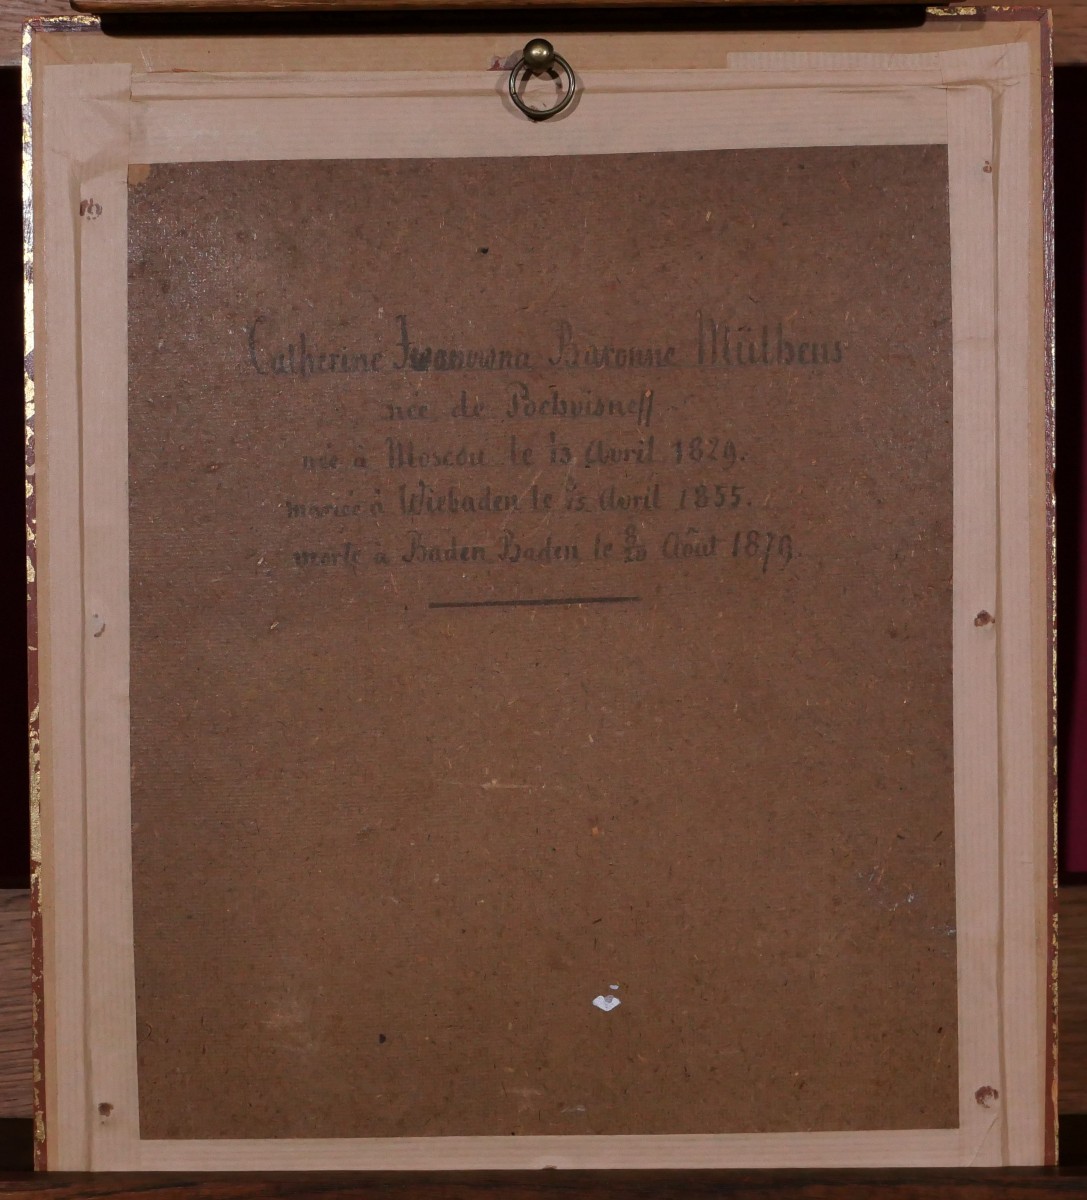 Catherine Iwanowna Baronne Mülhens
née de Pochvisneff
née à Moscou le 1/13 Avril 1829.
mariée à Wiebaden le Avril 1855.
morte à Baden Baden le 8/20 Aôut 1879.